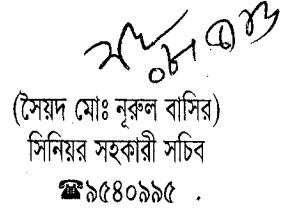 (সৈয়দ মোঃ নূরুল বাসির)
সিনিয়র সহকারী সচিব
☎৯৫৪০৯৯৫